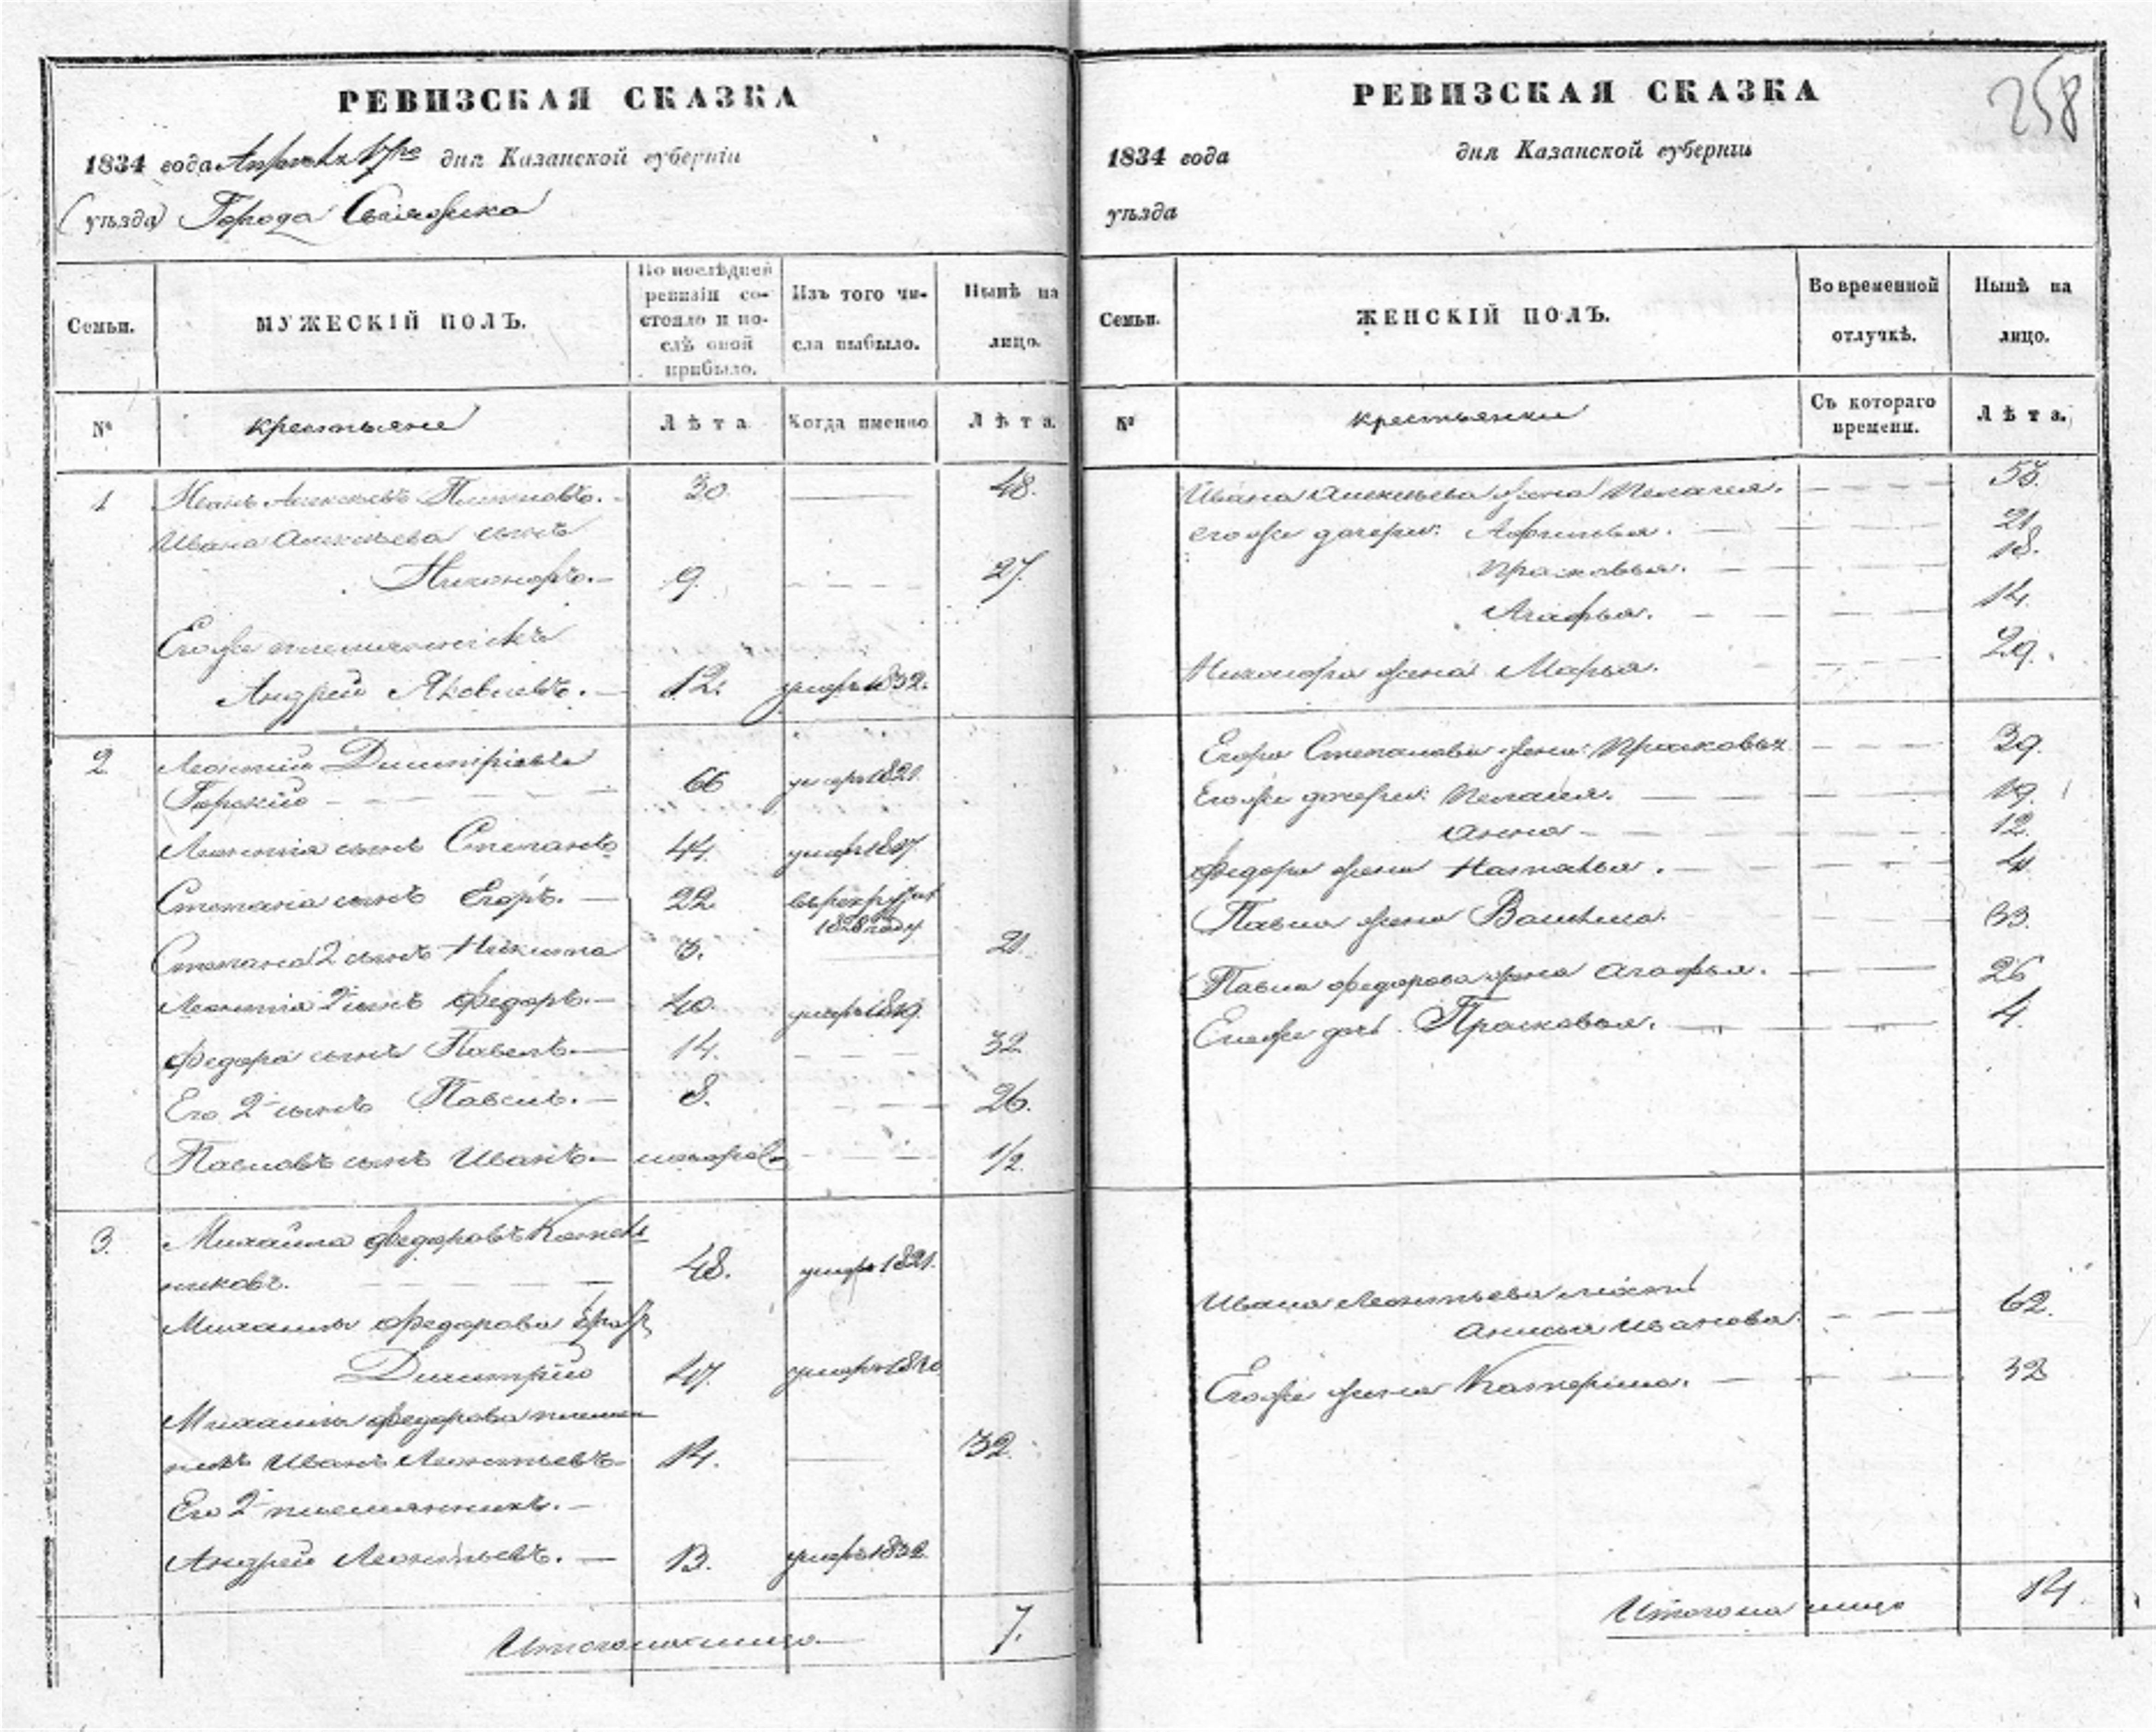 РЕВИЗСКАЯ СКАЗКА
1834 года Апреля 17го дня Казанской губерніи
(уѣзда) Города Свіяжска
Семьи.
МУЖЕСКІЙ ПОЛЪ.
По послѣдней ревизіи состояло и послѣ оной прибыло.
Изъ того числа выбыло.
Нынѣ на лицо.
№
крестьяне
Лѣта
Когда именно
Лѣта.
1 Иванъ Алексѣевъ 30. 48.
Ивана Алексѣева сынъ
Никоноръ. 9. 27.
Его же племянникъ
Андрей Яковлевъ. 12. умеръ 1832.
2 Леонтий Димитріевъ
Горскій 66 умеръ 1821.
Леонтія сынъ Степанъ 44. умеръ
Степана сынъ Егоръ. 22. въ рекруты
1828 году
Степана 2 сынъ Никита 3. 21.
Леонтія 2й сынъ Федоръ. 40. умеръ 1819.
Федора сынъ Павелъ. 14. 32
Его 2й сынъ Павелъ. 8. 26.
Павловъ сынъ Иванъ. новорож 1/2
3. Михайла Федоровъ Котель
никовъ. 48. умеръ 1821.
Михайлы Федорова братъ
Димитрій 47. умеръ
Михайлы Федорова племян
никъ Иванъ Леонтьевъ 14. 32.
Его 2й племянникъ.
Андрей Леонтьевъ. 13. умеръ 1832.
Итого на лицо. 7.
РЕВИЗСКАЯ СКАЗКА
258
1834 года дня Казанской губерніи
уѣзда
Семьи.
ЖЕНСКІЙ ПОЛЪ.
Во временной отлучкѣ.
Нынѣ на лицо.
№
крестьянки
Съ котораго времени.
Лѣта.
Ивана Алексѣева жена Пелагея. 53.
его же дочери: Афимья. 21.
Прасковья. 18.
Агафья. 14.
Никонора жена Марья. 29.
Егора Степанова жена Прасковья 39.
Его же дочери: Пелагея. 19.
Анна 12.
Федора жена Наталья.
Павла жена Василиса. 33.
Павла Федорова жена Агафья. 26
Его же дочь Прасковья. 4.
Ивана Леонтьева мать
Анисья Иванова. 62.
Его же жена Катерина. 32
Итого на лицо 14.